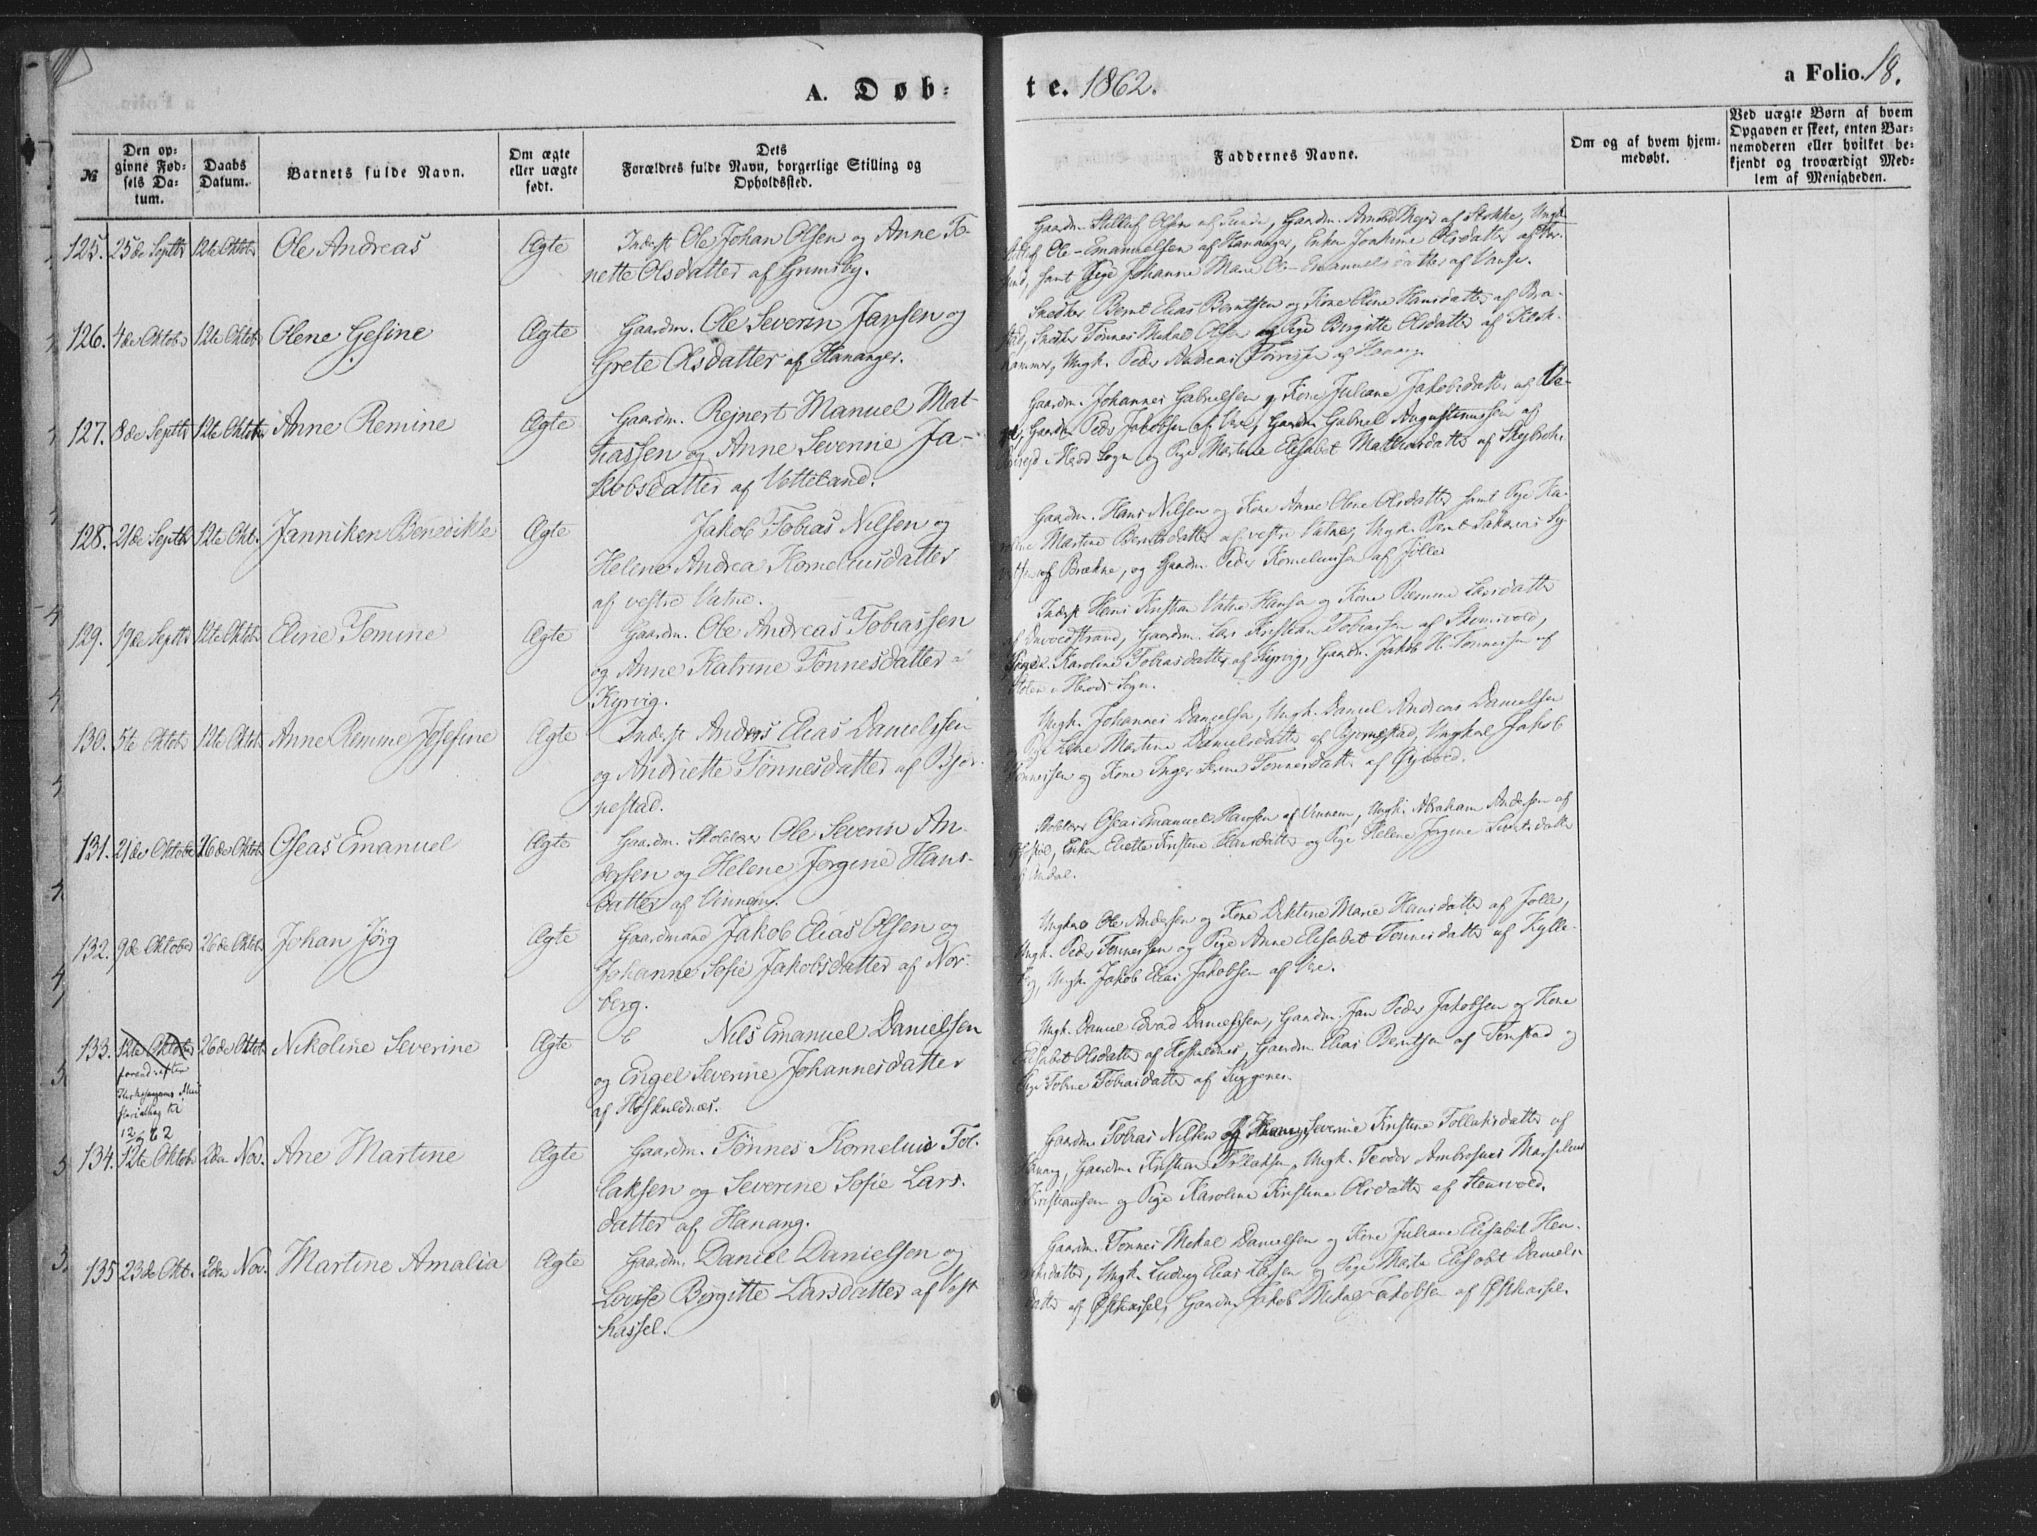 A. Døb-
te. 1862.
a Folio. 18.
№
Den op-
givne Fød-
sels Da-
tum.
Daabs
Datum.
Barnets fulde Navn.
Om ægte
eller uægte
født.
Dets
Forældres fulde Navn, borgerlige Stilling og
Opholdssted.
Faddernes Navne.
Om og af hvem hjem-
medøbt.
Ved uægte Børn af hvem
Opgaven er skeet, enten Bar-
nemoderen eller hvilket be-
kjendt og troværdigt Med-
lem af Menigheden.
125. 25de Septbr 12te Oktobr Ole Andreas Ægte Inderst Ole Johan Olsen og Anne To-
nette Olsdatter af Grimsby.
Gaardm. Olsen af Sunde, Gaardm. af Stokke, Ungk.
Ole Emanuelsen af Hananger, Enke Joakime Olsdatter af
samt Pige Johanne Marie Ole Emanuelsdatter af Vanse.
126. 4de Oktobr 12te Oktobr Olene Gesine Ægte Gaardm. Ole Severin Jansen og
Grete Olsdatter af Hananger.
Snedker Bernt Elias Berntsen og Kone Olene Hansdatter af
Snedker Tønnes Mikal Olsen og Pige Birgitte Olsdatter af
Ungk. Peder Andreas af Hanang.
127. 8de Septbr 12te Oktobr Anne Remine Ægte Gaardm. Rejnert Manuel Mat-
hiassen og Anne Severine Ja-
kobsdatter af Vetteland.
Gaardm. Johannes Gabrielsen og Kone Juliane Jakobsdatter af
Gaardm. Peder Jakobsen af Ore, Gaardm. Gabriel Augustinussen af
i Herod Sogn og Pige Martine Elisabet Mathiasdatter af
128. 21de Septbr 12te Okt. Janniken Benedikte Ægte Jakob Tobias Nilsen og
Helene Andrea Korneliusdatter
af vestre Vatne.
Gaardm. Hans Nilsen og Kone Anne Olene Olsdatter samt Pige Ka-
Martine Berntsdatter af vestre Vatne, Ungk. Bernt Sakarias
af Brekne, og Gaardm. Peder Korneliussen af Jølle
129. 19de Septbr 12te Oktobr Eline Tomine Ægte Gaardm. Ole Andreas Tobiassen
og Anne Katrine Tønnesdatter -
Kjørvig.
Inderst Hans Kristian Vatne Hansen og Kone Remine Larsdatter
Gaardm. Lars Kristian Tobiassen af Stensvold,
Karoline Tobiasdatter af Kjørvig, Gaardm. Jakob H. Tønnessen af
i Herods Sogn.
130. 5te Oktobr 12te Oktbr Anne Remine Josefine Ægte Inderst Anders Elias Danielsen
og Andriette Tønnesdatter af Bjør-
nestad.
Ungk. Johannes Danielsen, Ungk. Daniel Andreas Danielsen
Pige Lene Martine Danielsdatter af Bjørnestad, Ungkal Jakob
Tønnessen og Kone Inger Serine Tønnesdatt. af
131. 21de Oktobr 26de Oktob. Oseas Emanuel Ægte Gaardm. Skolelærer Ole Severin An-
dersen og Helene Jørgine Hans-
datter af Vinnem.
Skolelærer Oseas Emanuel Hansen af Vinnem, Ungk. Abraham Andersen af
Enken Eliette Kristine Hansdatter og Pige Helene Jørgine Sivertsdatter
132. 9de Oktobr 26de Oktob Johan Jørg Ægte Gaardmand Jakob Elias Olsen og
Johanne Sofie Jakobsdatter af Nor-
berg.
Ungk. Ole Andersen og Kone Dektine Marie Hansdatter af Jølle,
Ungk. Peder Tønnessen og Pige Anne Elisabet Tønnesdatter af Kylle-
Ungk. Jakob Elias Jakobsen af Ore.
133. 12te Oktobr 26de Oktob Nikoline Severine Ægte E Nils Emanuel Danielsen
og Engel Severine Johannesdatter
af Høskuldnæs.
12 9 62
Ungk. Daniel Edvard Danielsen, Gaardm. Jan Peder Jakobsen og Kone
Elisabet Olsdatter af Høskuldnes, Gaardm. Elias Berntsen af Penstad og
Pige Tobine Tobiasdatter af
134. 12te Oktobr 2den Nov. Ane Martine Ægte Gaardm. Tønnes Kornelius Tol-
laksen og Severine Sofie Lars-
datter af Hanang.
Gaardm. Tobias Nilsen og Severine Kirstine Tollaksdatter af
Hanang, Gaardm. Kristian Tollaksen, Ungk. Teodor Ambrosius Marselius
Kristiansen og Pige Karoline Kirstine Olsdatter af Stensvold.
135 23de Okt. 2den Nov. Martine Amalia Ægte Gaardm. Daniel Danielsen og
Lovise Birgitte Larsdatter af Vest
hassel.
Gaardm. Tønnes Mikal Danielsen og Kone Juliane Elisabet Hen-
riksdatter, Ungk. Ludvig Elias Larsen og Pige Marta Elisabet Daniels-
datter af Østhassel, Gaardm. Jakob Mikal Jakobsen af Østhassel.